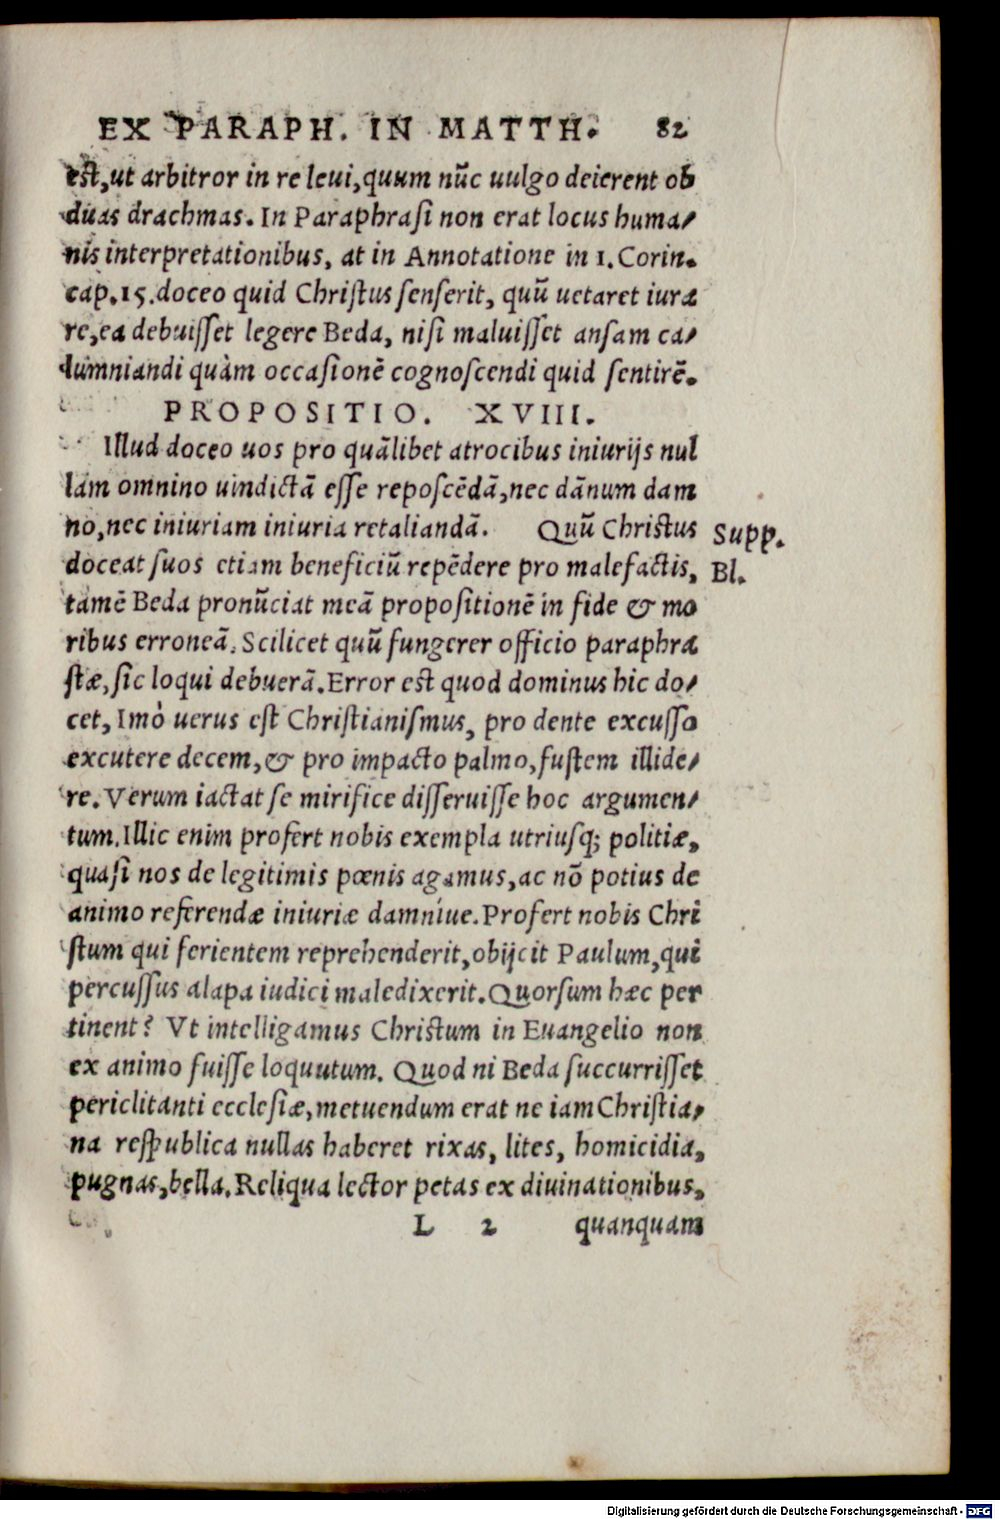 EX PARAPH. IN MATTH. 82
est, ut arbitror in re leui, quum nūc uulgo deierent ob
duas drachmas. In Paraphrasi non erat locus huma/
nis interpretationibus, at in Annotatione in 1. Corin.
cap. 15. doceo quid Christus senserit, quū uetaret iura
re, ea debuisset legere Beda, nisi maluisset ansam ca/
lumniandi quàm occasionē cognoscendi quid sentirē.
PROPOSITIO. XVIII.
Illud doceo uos pro quālibet atrocibus iniurijs nul
lam omnino uindictā esse reposcēdā, nec dānum dam
no, nec iniuriam iniuria retaliandā. Quū Christus
Supp.
doceat suos etiam beneficiū repēdere pro malefactis,
Bl.
tamē Beda pronūciat meā propositionē in fide & mo
ribus erroneā. Scilicet quū fungerer officio paraphra
stæ, sic loqui debuerā. Error est quod dominus hic do/
cet, Imò uerus est Christianismus, pro dente excusso
excutere decem, & pro impacto palmo, fustem illide/
re. Verum iactat se mirifice disseruisse hoc argumen/
tum. Illic enim profert nobis exempla utriusq; politiæ,
quasi nos de legitimis pœnis agamus, ac nō potius de
animo referendæ iniuriæ damníue. Profert nobis Chri
stum qui ferientem reprehenderit, obijcit Paulum, qui
percussus alapa iudici maledixerit. Quorsum hæc per
tinent? Vt intelligamus Christum in Euangelio non
ex animo fuisse loquutum. Quod ni Beda succurrisset
periclitanti ecclesiæ, metuendum erat ne iam Christia/
na respublica nullas haberet rixas, lites, homicidia,
pugnas, bella. Reliqua lector petas ex diuinationibus,
L 2 quanquam
Digitalisierung gefördert durch die Deutsche Forschungsgemeinschaft - DFG